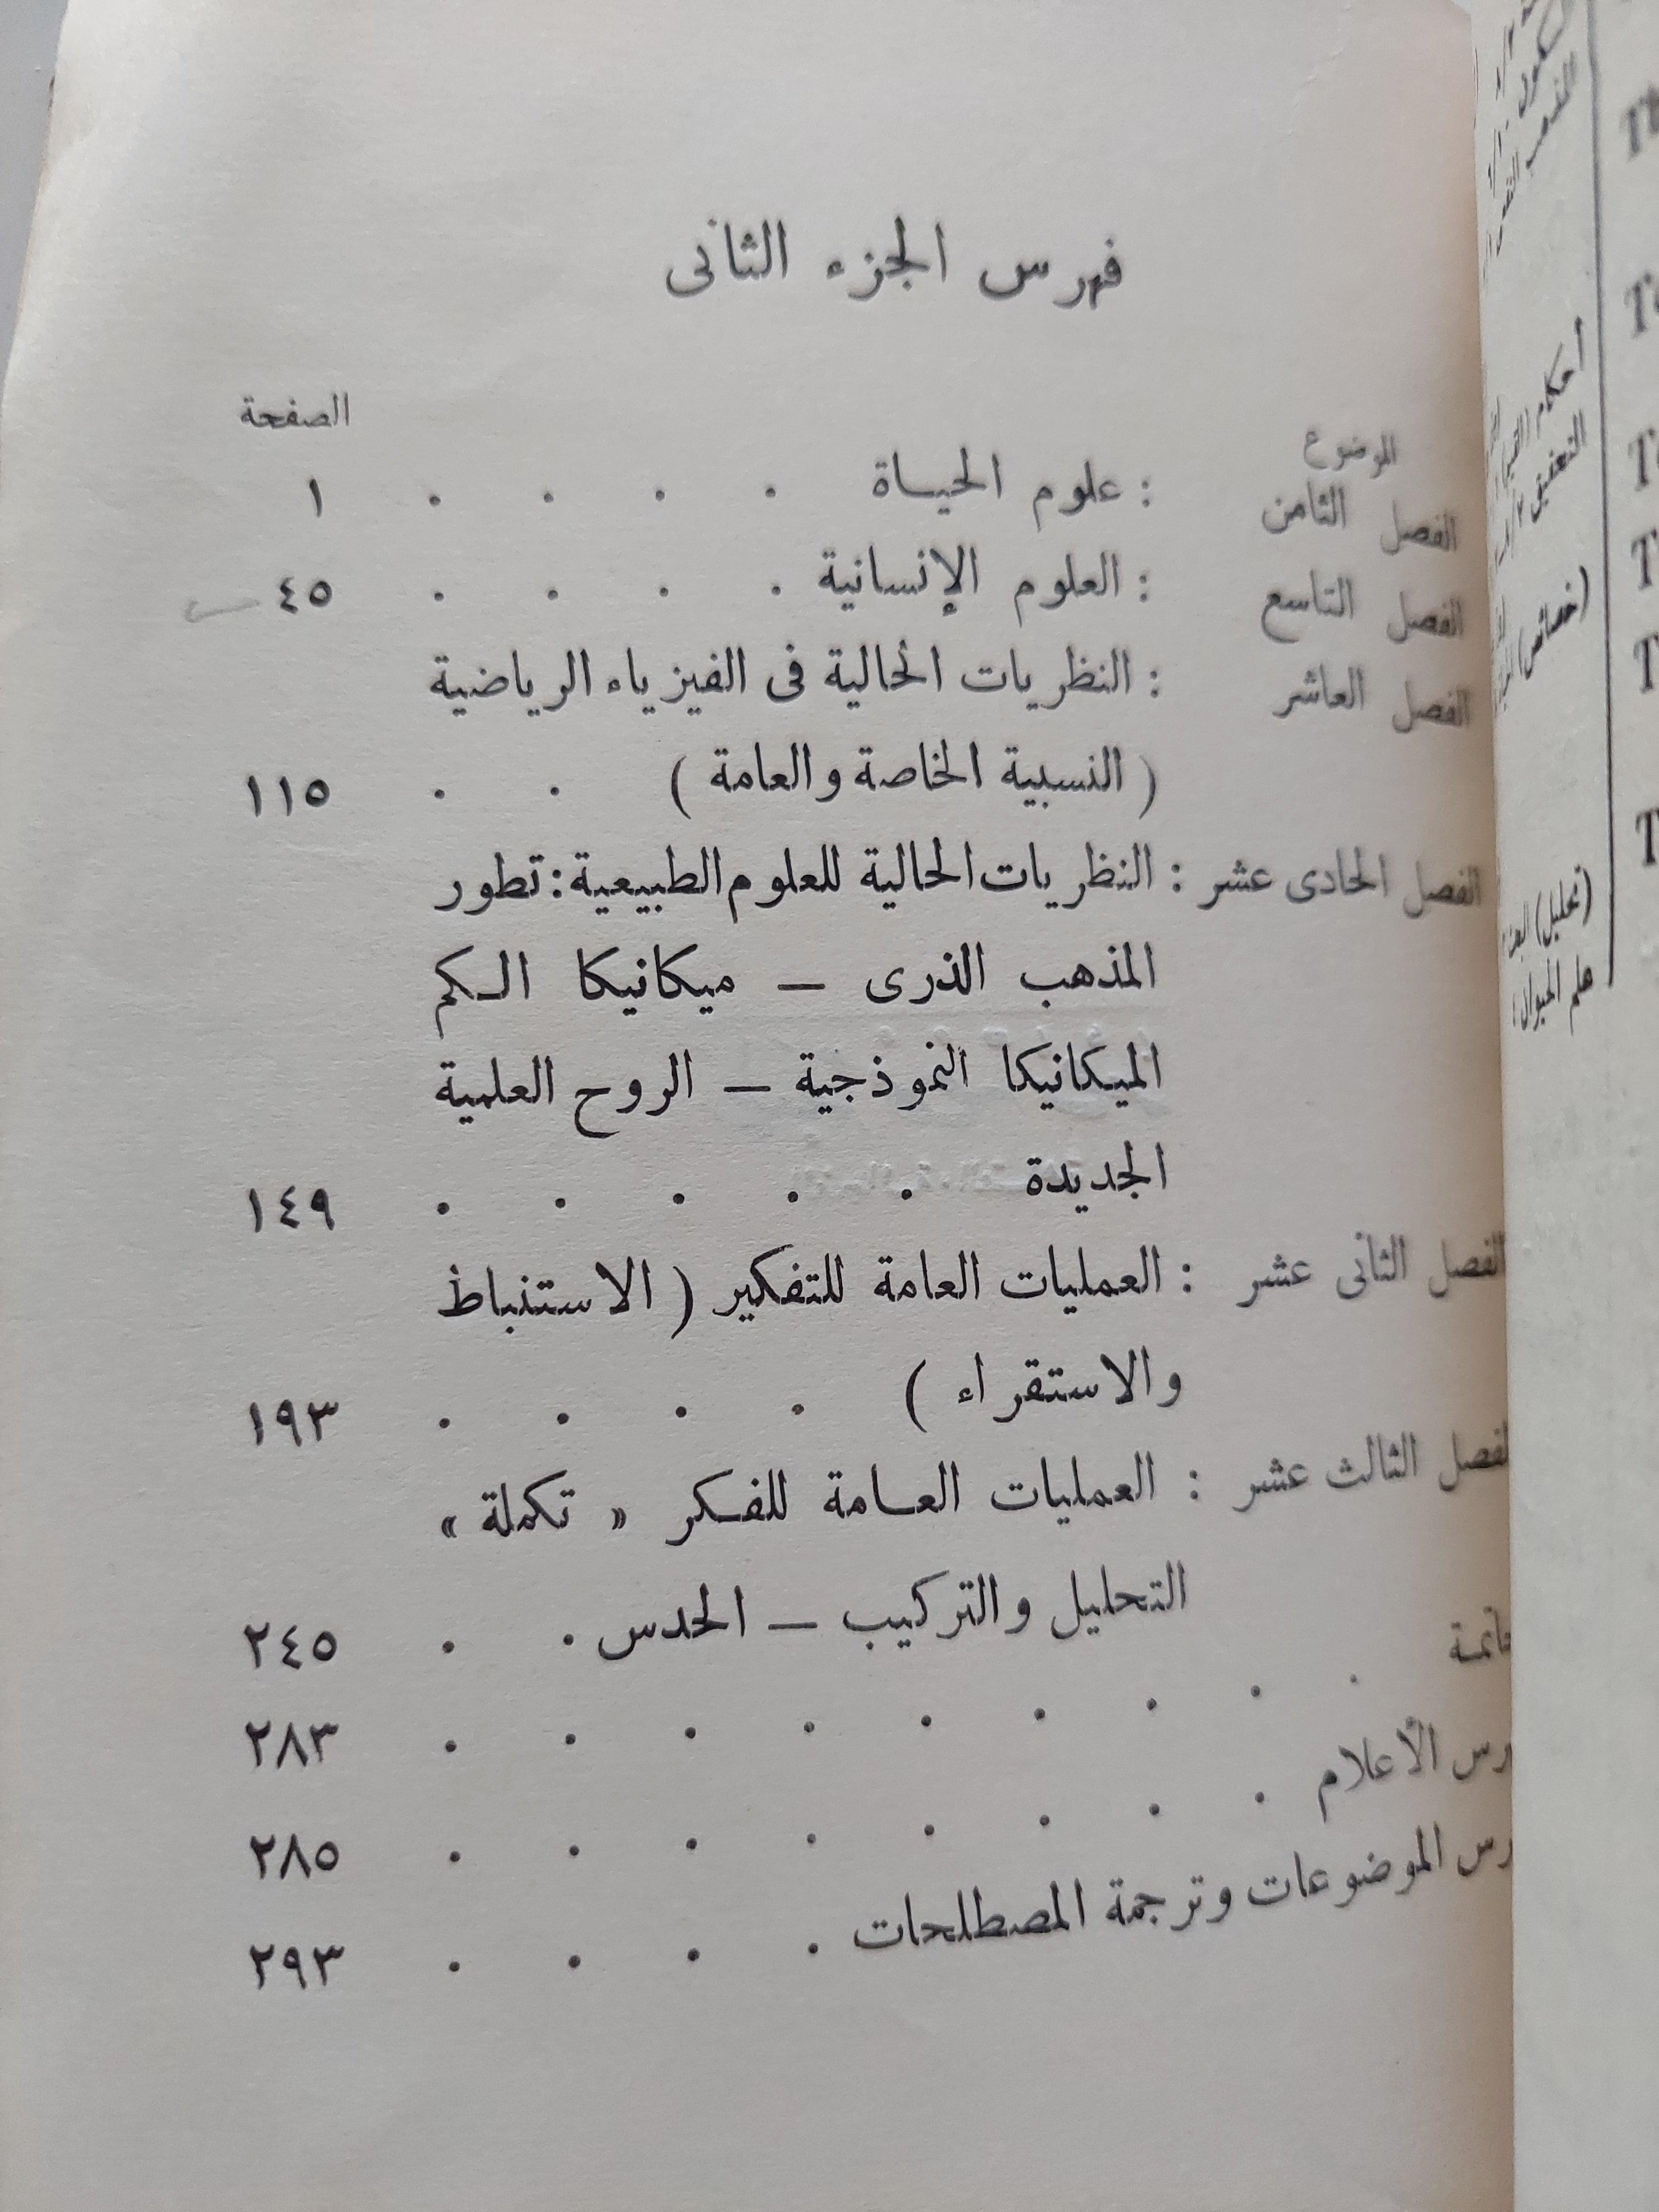 فهرس الجزء الثانى
الموضوع الصفحة
الفصل الثامن : علوم الحيـاة . . . . ١
الفصل التاسع : العلوم الإنسانية . . . . ٤٥
الفصل العاشر : النظريات الحالية فى الفيزياء الرياضية
( النسبية الخاصة والعامة ) . . ١١٥
الفصل الحادى عشر : النظريات الحالية للعلوم الطبيعية : تطور
المذهب الذرى — ميكانيكا الـكم
الميكانيكا النموذجية — الروح العلمية
الجديدة . . . . . ١٤٩
الفصل الثانى عشر : العمليات العامة للتفكير ( الاستنباط
والاستقراء ) . . . . ١٩٣
الفصل الثالث عشر : العمليات العـامة للفـكر « تكملة »
التحليل والتركيب — الحدس . . . ٢٤٥
خاتمـة . . . . . . . . . ٢٨٣
رس الأعلام . . . . . . . . ٢٨٥
رس الموضوعات وترجمة المصطلحات . . . . ٢٩٣
أحكام
(خصائص)
(تحليل)
علم الحيوان :